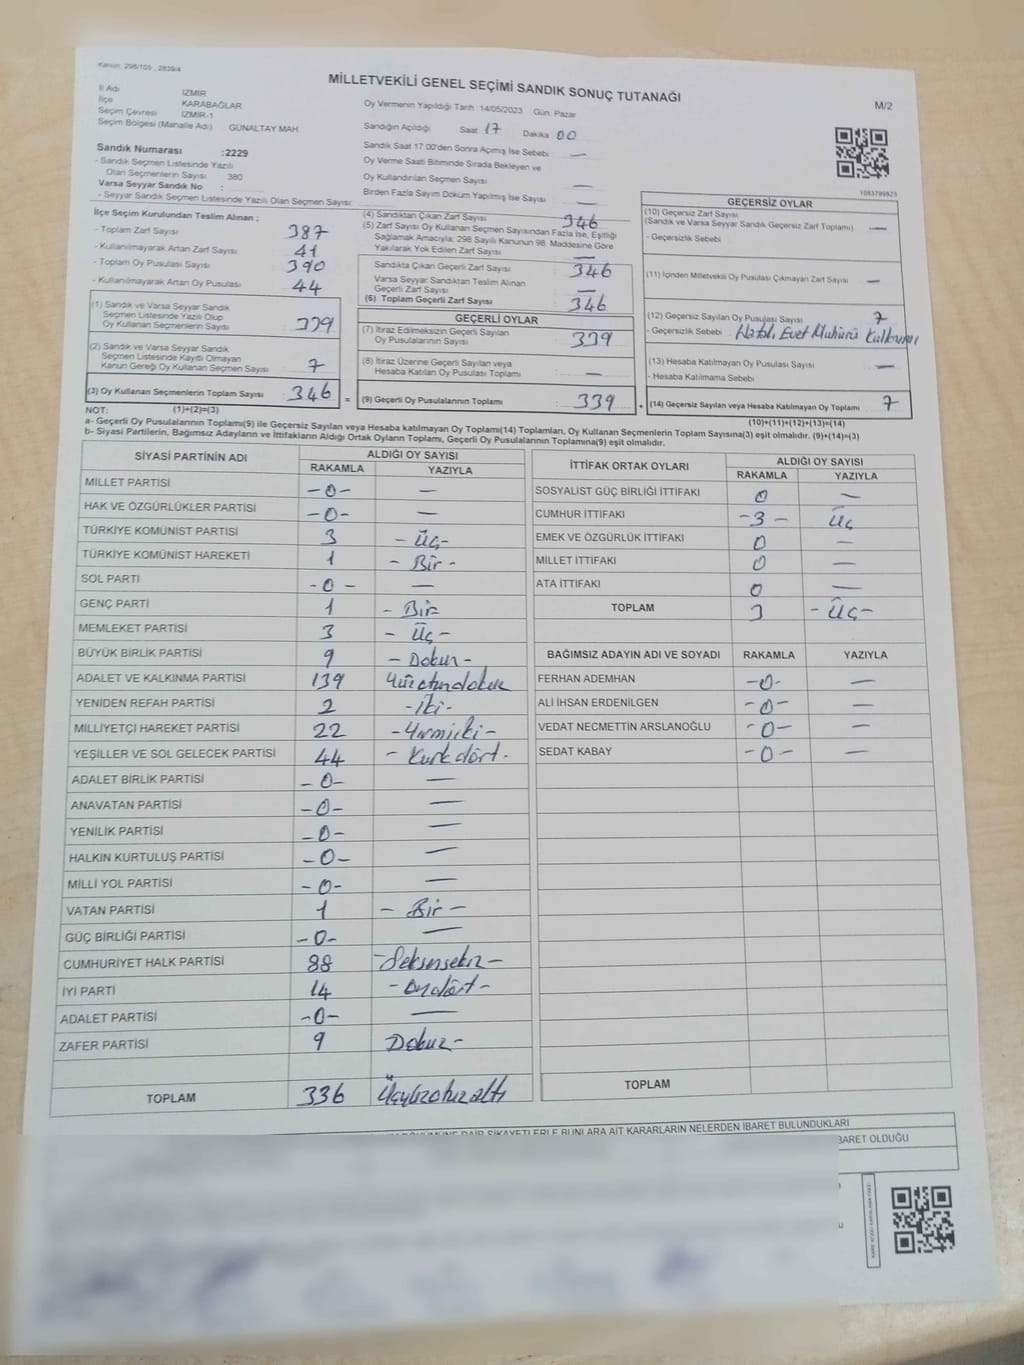 Kanun, 298/105 , 2839/4
MİLLETVEKİLİ GENEL SEÇİMİ SANDIK SONUÇ TUTANAĞI
M/2
İl Adı İZMİR
İlçe KARABAĞLAR
Seçim Çevresi İZMİR-1
Seçim Bölgesi (Mahalle Adı) GÜNALTAY MAH
Sandık Numarası :2229
- Sandık Seçmen Listesinde Yazılı
Olan Seçmenlerin Sayısı 380
Varsa Seyyar Sandık No :
- Seyyar Sandık Seçmen Listesinde Yazılı Olan Seçmen Sayısı:
Oy Vermenin Yapıldığı Tarih 14/05/2023 Gün: Pazar
Sandığın Açıldığı Saat 17 Dakika 00
Sandık Saat 17 00'den Sonra Açmış İse Sebebi —
Oy Verme Saati Bitiminde Sırada Bekleyen ve
Oy Kullandırılan Seçmen Sayısı —
Birden Fazla Sayım Döküm Yapılmış İse Sayısı —
1083799823
İlçe Seçim Kurulundan Teslim Alınan ;
- Toplam Zarf Sayısı 387
- Kullanılmayarak Artan Zarf Sayısı 41
- Toplam Oy Pusulası Sayısı 390
- Kullanılmayarak Artan Oy Pusulası 44
(1) Sandık ve Varsa Seyyar Sandık
Seçmen Listesinde Yazılı Olup
Oy Kullanan Seçmenlerin Sayısı 339
(2) Sandık ve Varsa Seyyar Sandık
Seçmen Listesinde Kayıtlı Olmayan
Kanun Gereği Oy Kullanan Seçmen Sayısı 7
(3) Oy Kullanan Seçmenlerin Toplam Sayısı 346 =
(4) Sandıktan Çıkan Zarf Sayısı 346
(5) Zarf Sayısı Oy Kullanan Seçmen Sayısından Fazla İse, Eşitliği
Sağlamak Amacıyla, 298 Sayılı Kanunun 98. Maddesine Göre
Yakılarak Yok Edilen Zarf Sayısı —
Sandıkta Çıkan Geçerli Zarf Sayısı 346
Varsa Seyyar Sandıktan Teslim Alınan
Geçerli Zarf Sayısı —
(6) Toplam Geçerli Zarf Sayısı 346
GEÇERLİ OYLAR
(7) İtiraz Edilmeksizin Geçerli Sayılan
Oy Pusulalarının Sayısı 339
(8) İtiraz Üzerine Geçerli Sayılan veya
Hesaba Katılan Oy Pusulası Toplamı —
(9) Geçerli Oy Pusulalarının Toplamı 339 +
GEÇERSİZ OYLAR
(10) Geçersiz Zarf Sayısı
(Sandık ve Varsa Seyyar Sandık Geçersiz Zarf Toplamı) —
- Geçersizlik Sebebi
(11) İçinden Milletvekili Oy Pusulası Çıkmayan Zarf Sayısı —
(12) Geçersiz Sayılan Oy Pusulası Sayısı 7
- Geçersizlik Sebebi Hatalı Evet Mührü Kullanımı
(13) Hesaba Katılmayan Oy Pusulası Sayısı —
- Hesaba Katılmama Sebebi
(14) Geçersiz Sayılan veya Hesaba Katılmayan Oy Toplamı 7
NOT: (1)+(2)=(3) (10)+(11)+(12)+(13)=(14)
a- Geçerli Oy Pusulalarının Toplamı(9) ile Geçersiz Sayılan veya Hesaba katılmayan Oy Toplamı(14) Toplamları, Oy Kullanan Seçmenlerin Toplam Sayısına(3) eşit olmalıdır. (9)+(14)=(3)
b- Siyasi Partilerin, Bağımsız Adayların ve İttifakların Aldığı Ortak Oyların Toplamı, Geçerli Oy Pusulalarının Toplamına(9) eşit olmalıdır.
SİYASİ PARTİNİN ADI ALDIĞI OY SAYISI
RAKAMLA YAZIYLA
MİLLET PARTİSİ -0- —
HAK VE ÖZGÜRLÜKLER PARTİSİ -0- —
TÜRKİYE KOMÜNİST PARTİSİ 3 - Üç-
TÜRKİYE KOMÜNİST HAREKETİ 1 - Bir -
SOL PARTİ -0- —
GENÇ PARTİ 1 - Bir
MEMLEKET PARTİSİ 3 - Üç -
BÜYÜK BİRLİK PARTİSİ 9 - Dokuz -
ADALET VE KALKINMA PARTİSİ 139 Yüzotuzdokuz
YENİDEN REFAH PARTİSİ 2 -İki-
MİLLİYETÇİ HAREKET PARTİSİ 22 -Yirmiiki-
YEŞİLLER VE SOL GELECEK PARTİSİ 44 - Kırkdört-
ADALET BİRLİK PARTİSİ -0- —
ANAVATAN PARTİSİ -0- —
YENİLİK PARTİSİ -0- —
HALKIN KURTULUŞ PARTİSİ -0- —
MİLLİ YOL PARTİSİ -0- —
VATAN PARTİSİ 1 - Bir -
GÜÇ BİRLİĞİ PARTİSİ -0- —
CUMHURİYET HALK PARTİSİ 88 -Seksensekiz-
İYİ PARTİ 14 - Ondört -
ADALET PARTİSİ -0- —
ZAFER PARTİSİ 9 Dokuz-
TOPLAM 336 Üçyüzotuzaltı
İTTİFAK ORTAK OYLARI ALDIĞI OY SAYISI
RAKAMLA YAZIYLA
SOSYALİST GÜÇ BİRLİĞİ İTTİFAKI 0 —
CUMHUR İTTİFAKI -3- Üç
EMEK VE ÖZGÜRLÜK İTTİFAKI 0 —
MİLLET İTTİFAKI 0 —
ATA İTTİFAKI 0 —
TOPLAM 3 - Üç-
BAĞIMSIZ ADAYIN ADI VE SOYADI RAKAMLA YAZIYLA
FERHAN ADEMHAN -0- —
ALİ İHSAN ERDENİLGEN -0- —
VEDAT NECMETTİN ARSLANOĞLU -0- —
SEDAT KABAY -0- —
TOPLAM
DAİR ŞİKAYETLERLE BUNLARA AİT KARARLARIN NELERDEN İBARET BULUNDUKLARI
İBARET OLDUĞU